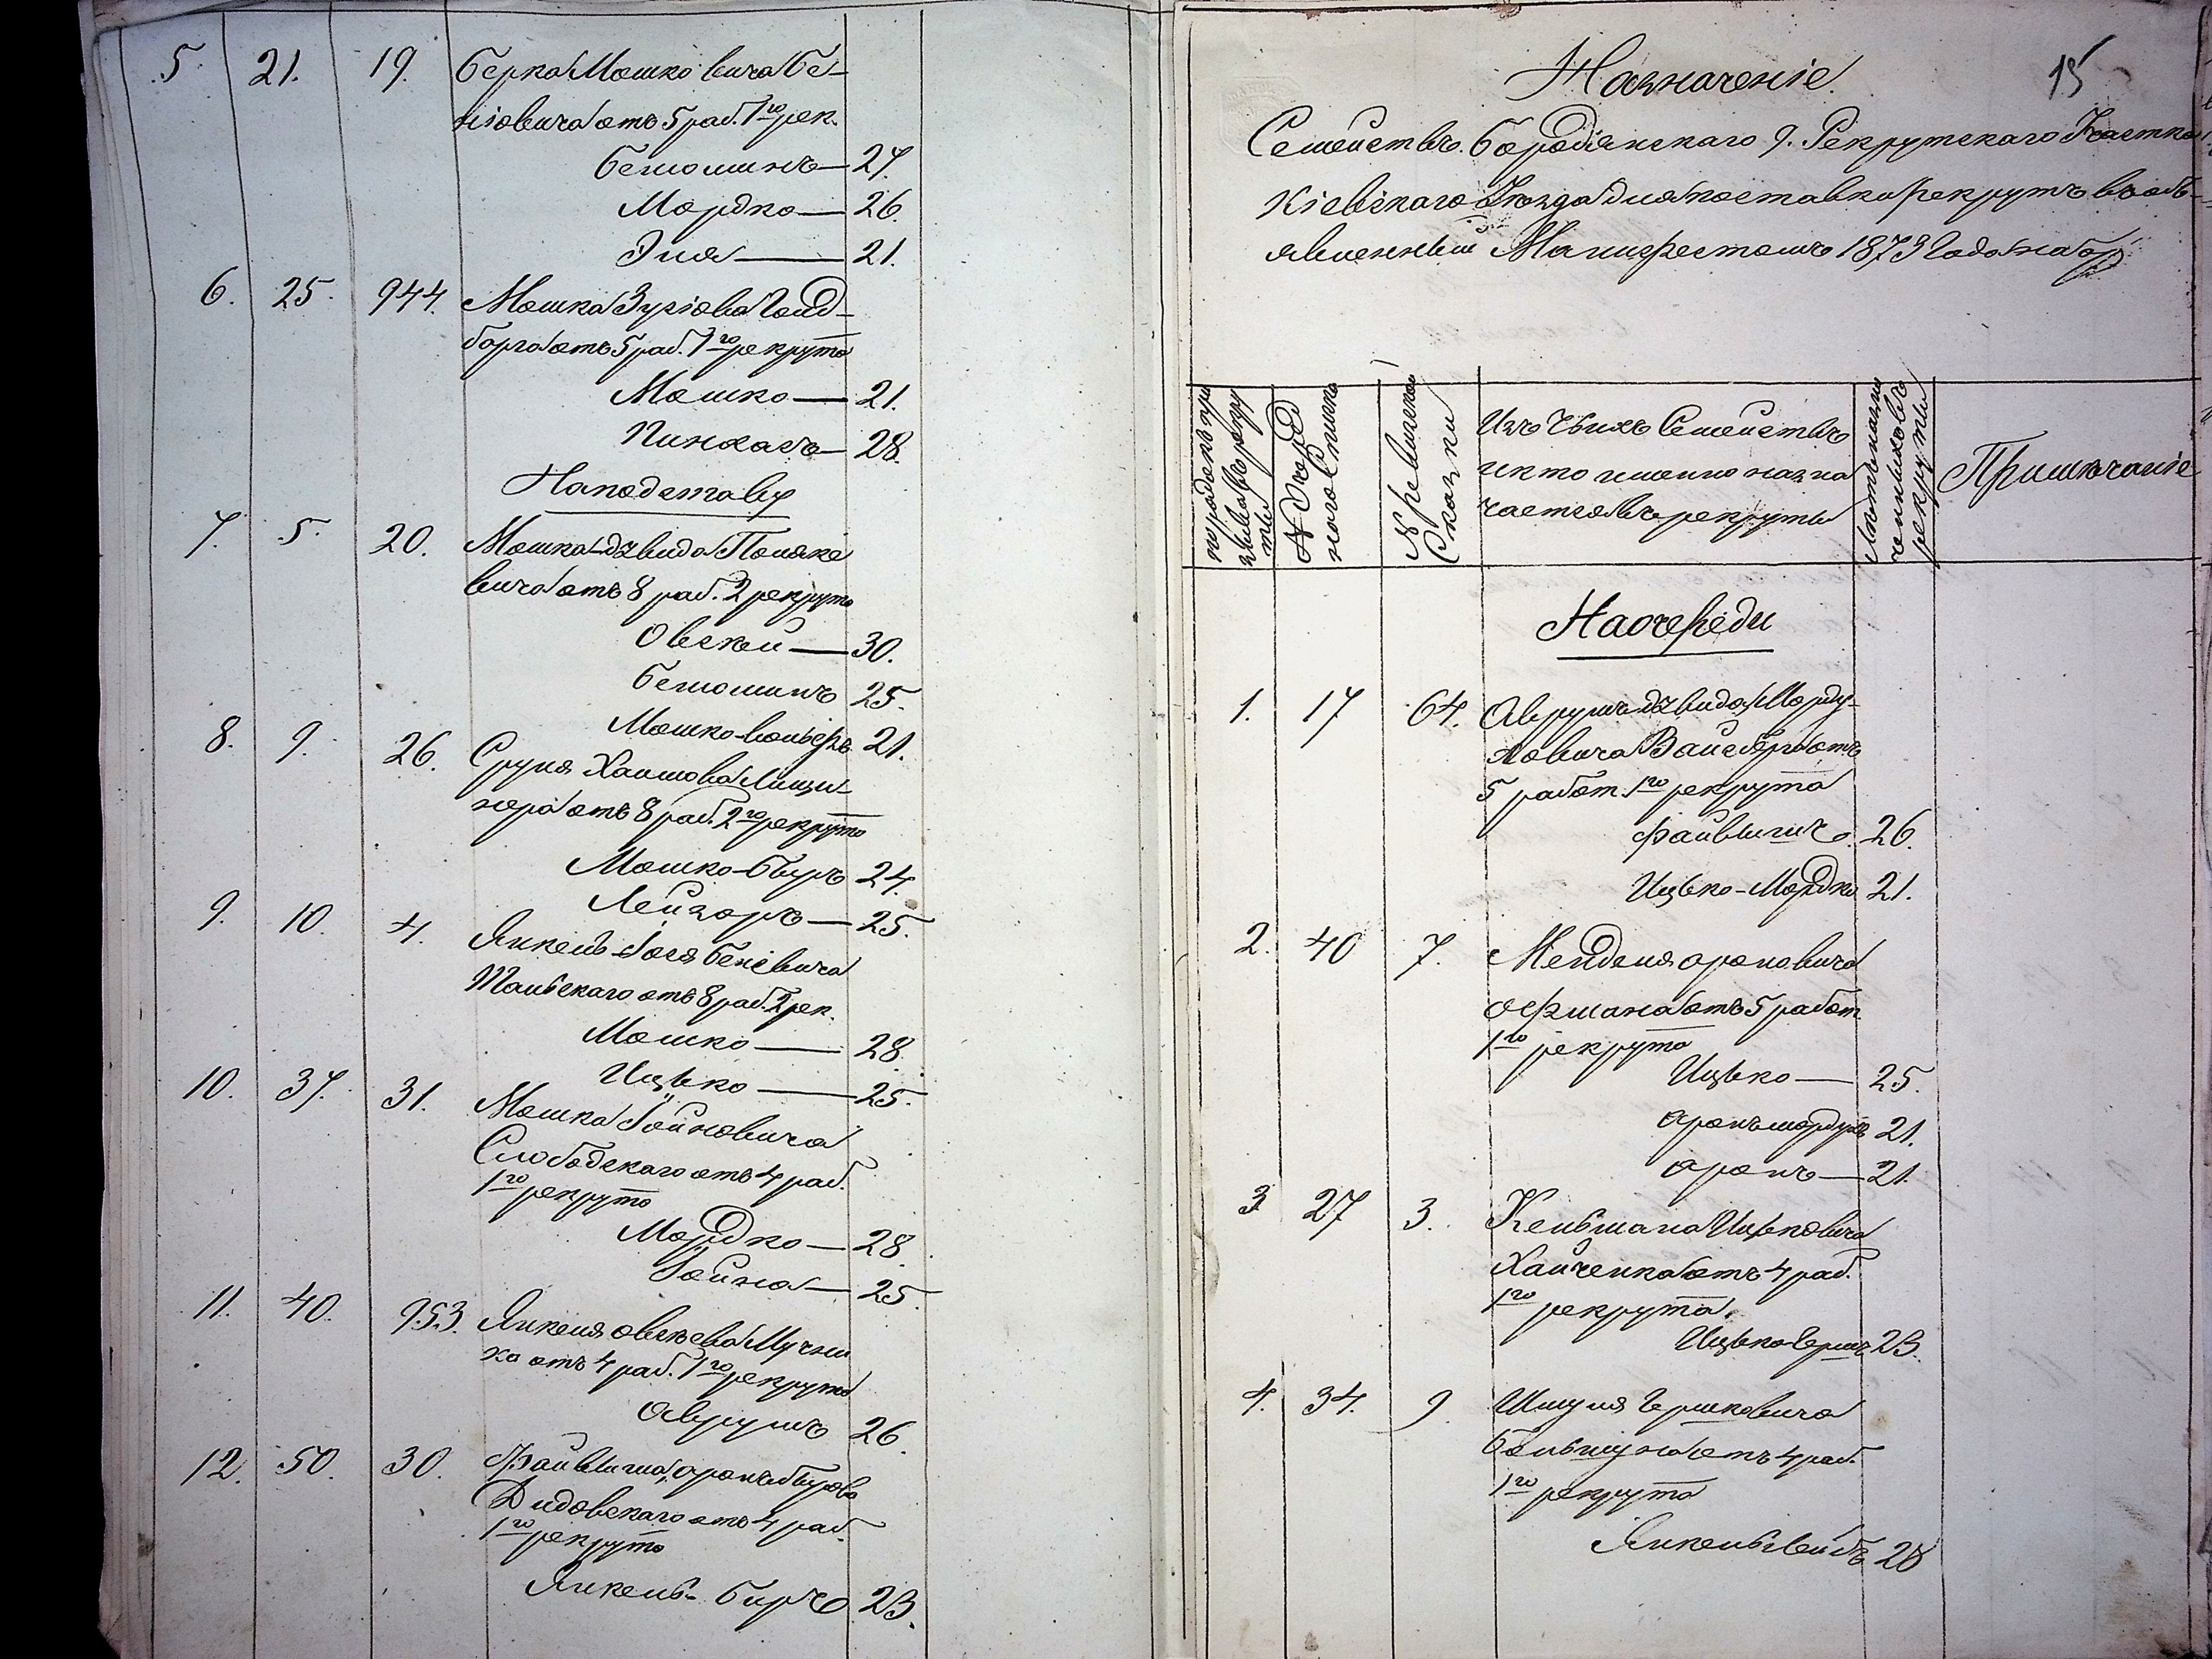 5. 21. 19. Берка Мошковича Бе-
ніовича отъ 5 раб. 1го рек.
Беньоминъ — 27.
Мордко — 26.
Эля — 21.
6. 25. 944. Мошка Зусіова Голд-
борга отъ 5 раб. 1го рекрута
Мошко — 21.
Пинхасъ — 28.
На подставу
7. 5. 20. Мошка-Дзвида Поляке
вича отъ 8 раб. 2 рекрута
Овсей — 30.
Беньоминъ 25.
Мошко-Вольфъ 21.
8. 9. 26. Сруля Хаимова
отъ 8 раб. 2го рекрута
Мошко-Беръ 24.
Лейзоръ — 25.
9. 10. 4. Янкель-Іося Беневича
Тальскаго отъ 8 раб. 2 рек.
Мошко — 28.
Ицько — 25.
10. 37. 31. Мошка Іойновича
Слободскаго отъ 4 раб.
1го рекрута
Мордко — 28.
Іойна — 25.
11. 40. 953. Янкеля Овсѣева Мучни
ка отъ 4 раб. 1го рекрута
Аврумъ 26.
12. 50. 30. Файвиша, Аронъ-Берова
Дидовскаго отъ 4 раб.
1го рекрута
Янкель-Беръ 23.
15
Назначеніе
Семействъ Бородянскаго 9. Рекрутскаго Участка
Кіевскаго Уѣзда для поставки рекрутъ въ объ-
явленный Манифестомъ 1873 года наборъ
№ Очеред
наго Списка
№ ревизской
Сказки
Изъ чьихъ Семействъ
и кто именно назна
чается въ рекруты
Лѣта назна
ченныхъ въ
рекруты
Примѣчаніе
На очереди
1. 17 64. Аврумъ-Дзвида Морду-
ховича Вайсберга отъ
5 работ. 1го рекрута
Файвишъ. 26.
Ицько-Мордко 21.
2. 40 7. Менделя Ароновича
отъ 5 работ.
1го рекрута
Ицько — 25.
Аронъ-Мордухъ 21.
Аронъ — 21.
3 27 3. Кельмана Ицьковича
Хайченка отъ 4 раб.
1го рекрута.
Ицько-Гершъ 23.
4. 34. 9. Шмуля Гершковича
отъ 4 раб.
1го рекрута
Янкель-Лейбъ 28